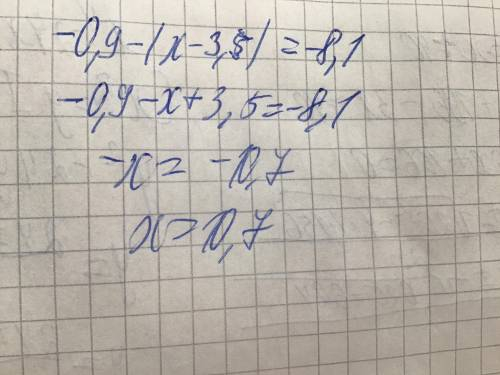 -0,9-(x-3,5)=-8,1
-0,9-x+3,5=-8,1
-x=-10,7
x=10,7